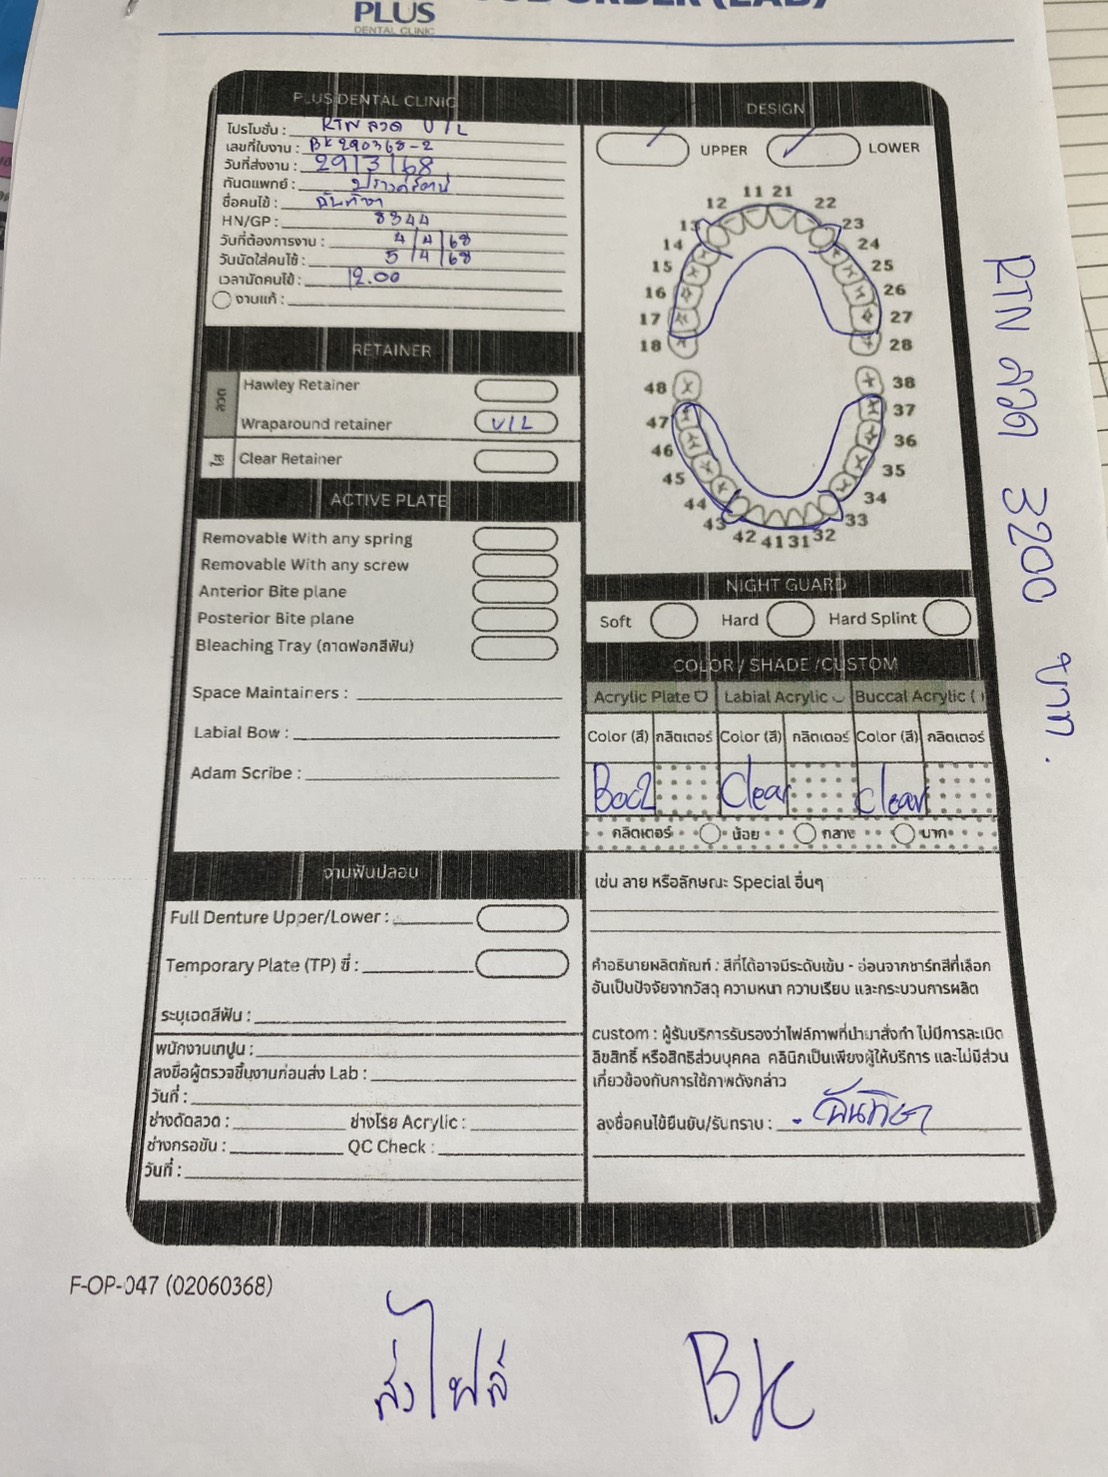 PLUS
DENTAL CLINIC
PLUS DENTAL CLINIC
โปรโมชั่น : RTN ลวด U/L
เลขที่ใบงาน : BK290368-2
วันที่ส่งงาน : 29/3/68
ทันตแพทย์ :
ชื่อคนไข้ : ฉันทิชา
HN/GP : 8344
วันที่ต้องการงาน : 4/4/68
วันนัดใส่คนไข้ : 5/4/68
เวลานัดคนไข้ : 12.00
งานแก้ :
RETAINER
ลวด
Hawley Retainer
Wraparound retainer U/L
ใส
Clear Retainer
ACTIVE PLATE
Removable With any spring
Removable With any screw
Anterior Bite plane
Posterior Bite plane
Bleaching Tray (ถาดฟอกสีฟัน)
Space Maintainers :
Labial Bow :
Adam Scribe :
งานฟันปลอม
Full Denture Upper/Lower :
Temporary Plate (TP) ซี่ :
ระบุเฉดสีฟัน :
พนักงานเทปูน :
ลงชื่อผู้ตรวจชิ้นงานก่อนส่ง Lab :
วันที่ :
ช่างดัดลวด : ช่างโรย Acrylic :
ช่างกรอขัน : QC Check :
วันที่ :
DESIGN
UPPER LOWER
11 21
12 22
13 23
14 24
15 25
16 26
17 27
18 28
48 38
47 37
46 36
45 35
44 34
43 33
42 41 31 32
NIGHT GUARD
Soft Hard Hard Splint
COLOR / SHADE /CUSTOM
Acrylic Plate Labial Acrylic Buccal Acrylic ( )
Color (สี) กลิตเตอร์ Color (สี) กลิตเตอร์ Color (สี) กลิตเตอร์
B002 Clear Clear
กลิตเตอร์ น้อย กลาง มาก
เช่น ลาย หรือลักษณะ Special อื่นๆ
คำอธิบายผลิตภัณฑ์ : สีที่ได้อาจมีระดับเข้ม - อ่อนจากชาร์ทสีที่เลือก
อันเป็นปัจจัยจากวัสดุ ความหนา ความเรียบ และกระบวนการผลิต
custom : ผู้รับบริการรับรองว่าไฟล์ภาพที่นำมาสั่งทำ ไม่มีการละเมิด
ลิขสิทธิ์ หรือสิทธิส่วนบุคคล คลินิกเป็นเพียงผู้ให้บริการ และไม่มีส่วน
เกี่ยวข้องกับการใช้ภาพดังกล่าว
ลงชื่อคนไข้ยืนยัน/รับทราบ : ฉันทิชา
RTN ลวด 3200 บาท.
F-OP-047 (02060368)
ส่งไฟล์ BK